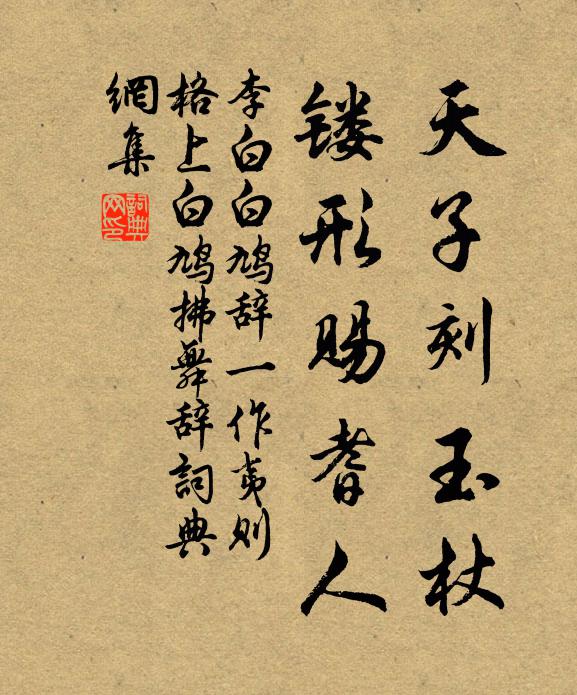 天子刻玉杖
镂形赐耆人
李白白鸠辞一作夷则
格上白鸠拂舞辞詞典
網集
詞典网印